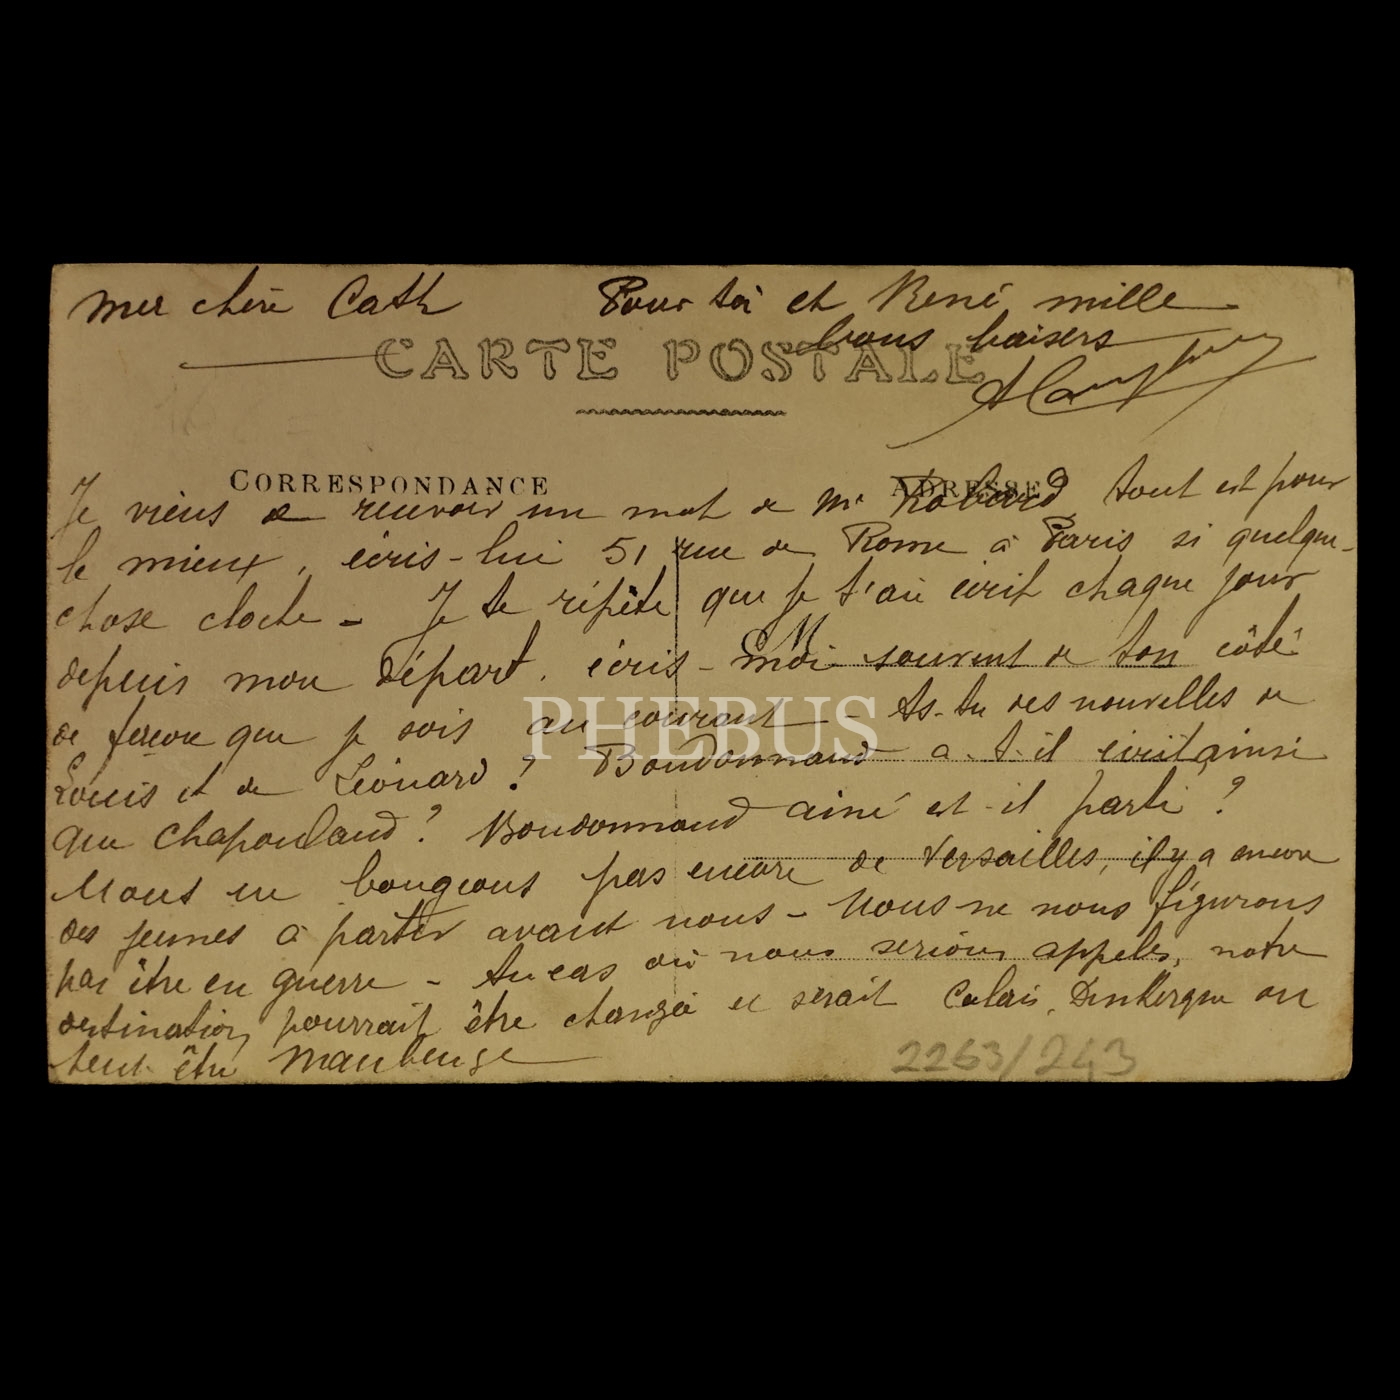 Ma chère Cath
Pour toi et René mille
bons baisers
CARTE POSTALE
CORRESPONDANCE
ADRESSE
Je viens de recevoir un mot de Mr tout est pour
le mieux, écris-lui 51 rue de Rome à Paris si quelque-
chose cloche - Je te répète que je t'ai écrit chaque jour
depuis mon départ. écris-moi souvent de ton côté
de façon que je sois au courant - As-tu des nouvelles de
Louis et de Léonard ? Boudonnaud a-t-il écrit ainsi
que Chapoulaud ? Boudonnaud ainé est-il parti ?
Nous ne bougeons pas encore de Versailles, il y a encore
des jeunes à partir avant nous - Nous ne nous figurons
pas être en guerre - Au cas où nous serions appelés, notre
destination pourrait être changée et serait Calais, Dunkerque ou
peut-être Maubeuge
PHEBUS
2263/243